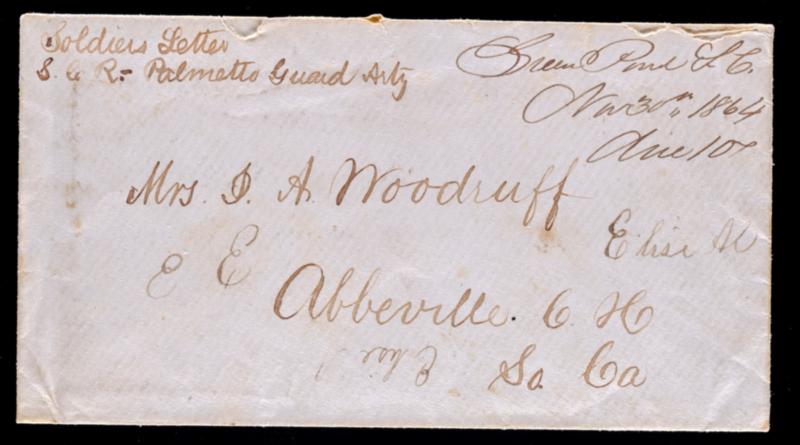 Soldiers Letter
S. C. R.- Palmetto Guard Arty
Green Pond S. C.
Nov 30th 1864
due 10
Mrs. D. A. Woodruff
Elise
E E
Abbeville. C. H
So. Ca